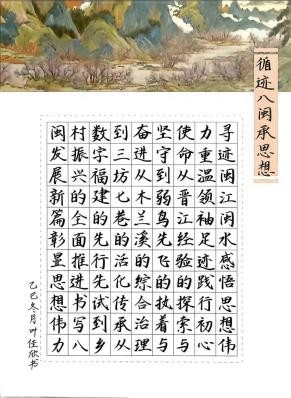 循迹八闽承思想
寻迹闽江闽水感悟思想伟
力重温领袖足迹践行初心
使命从晋江经验的探索与
坚守到弱鸟先飞的执着与
奋进从木兰溪的综合治理
到三坊七巷的活化传承从
数字福建的先行先试到乡
村振兴的全面推进书写八
闽发展新篇彰显思想伟力
乙巳冬月叶佳欣书